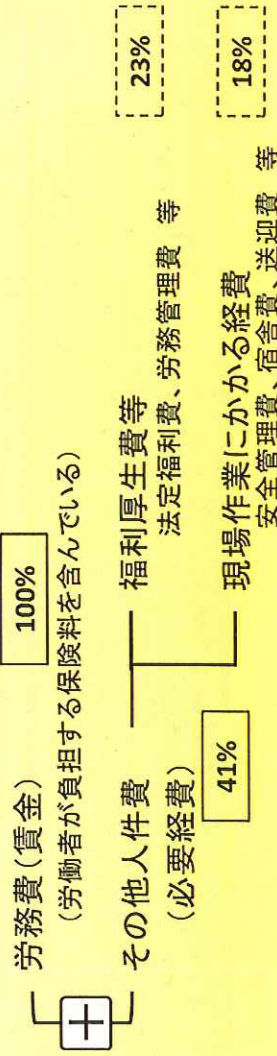 労務費(賃金) 100%
(労働者が負担する保険料を含んでいる)
+
その他人件費
(必要経費)
41%
福利厚生費等 23%
法定福利費、労務管理費 等
現場作業にかかる経費 18%
安全管理費、宿舎費、送迎費 等